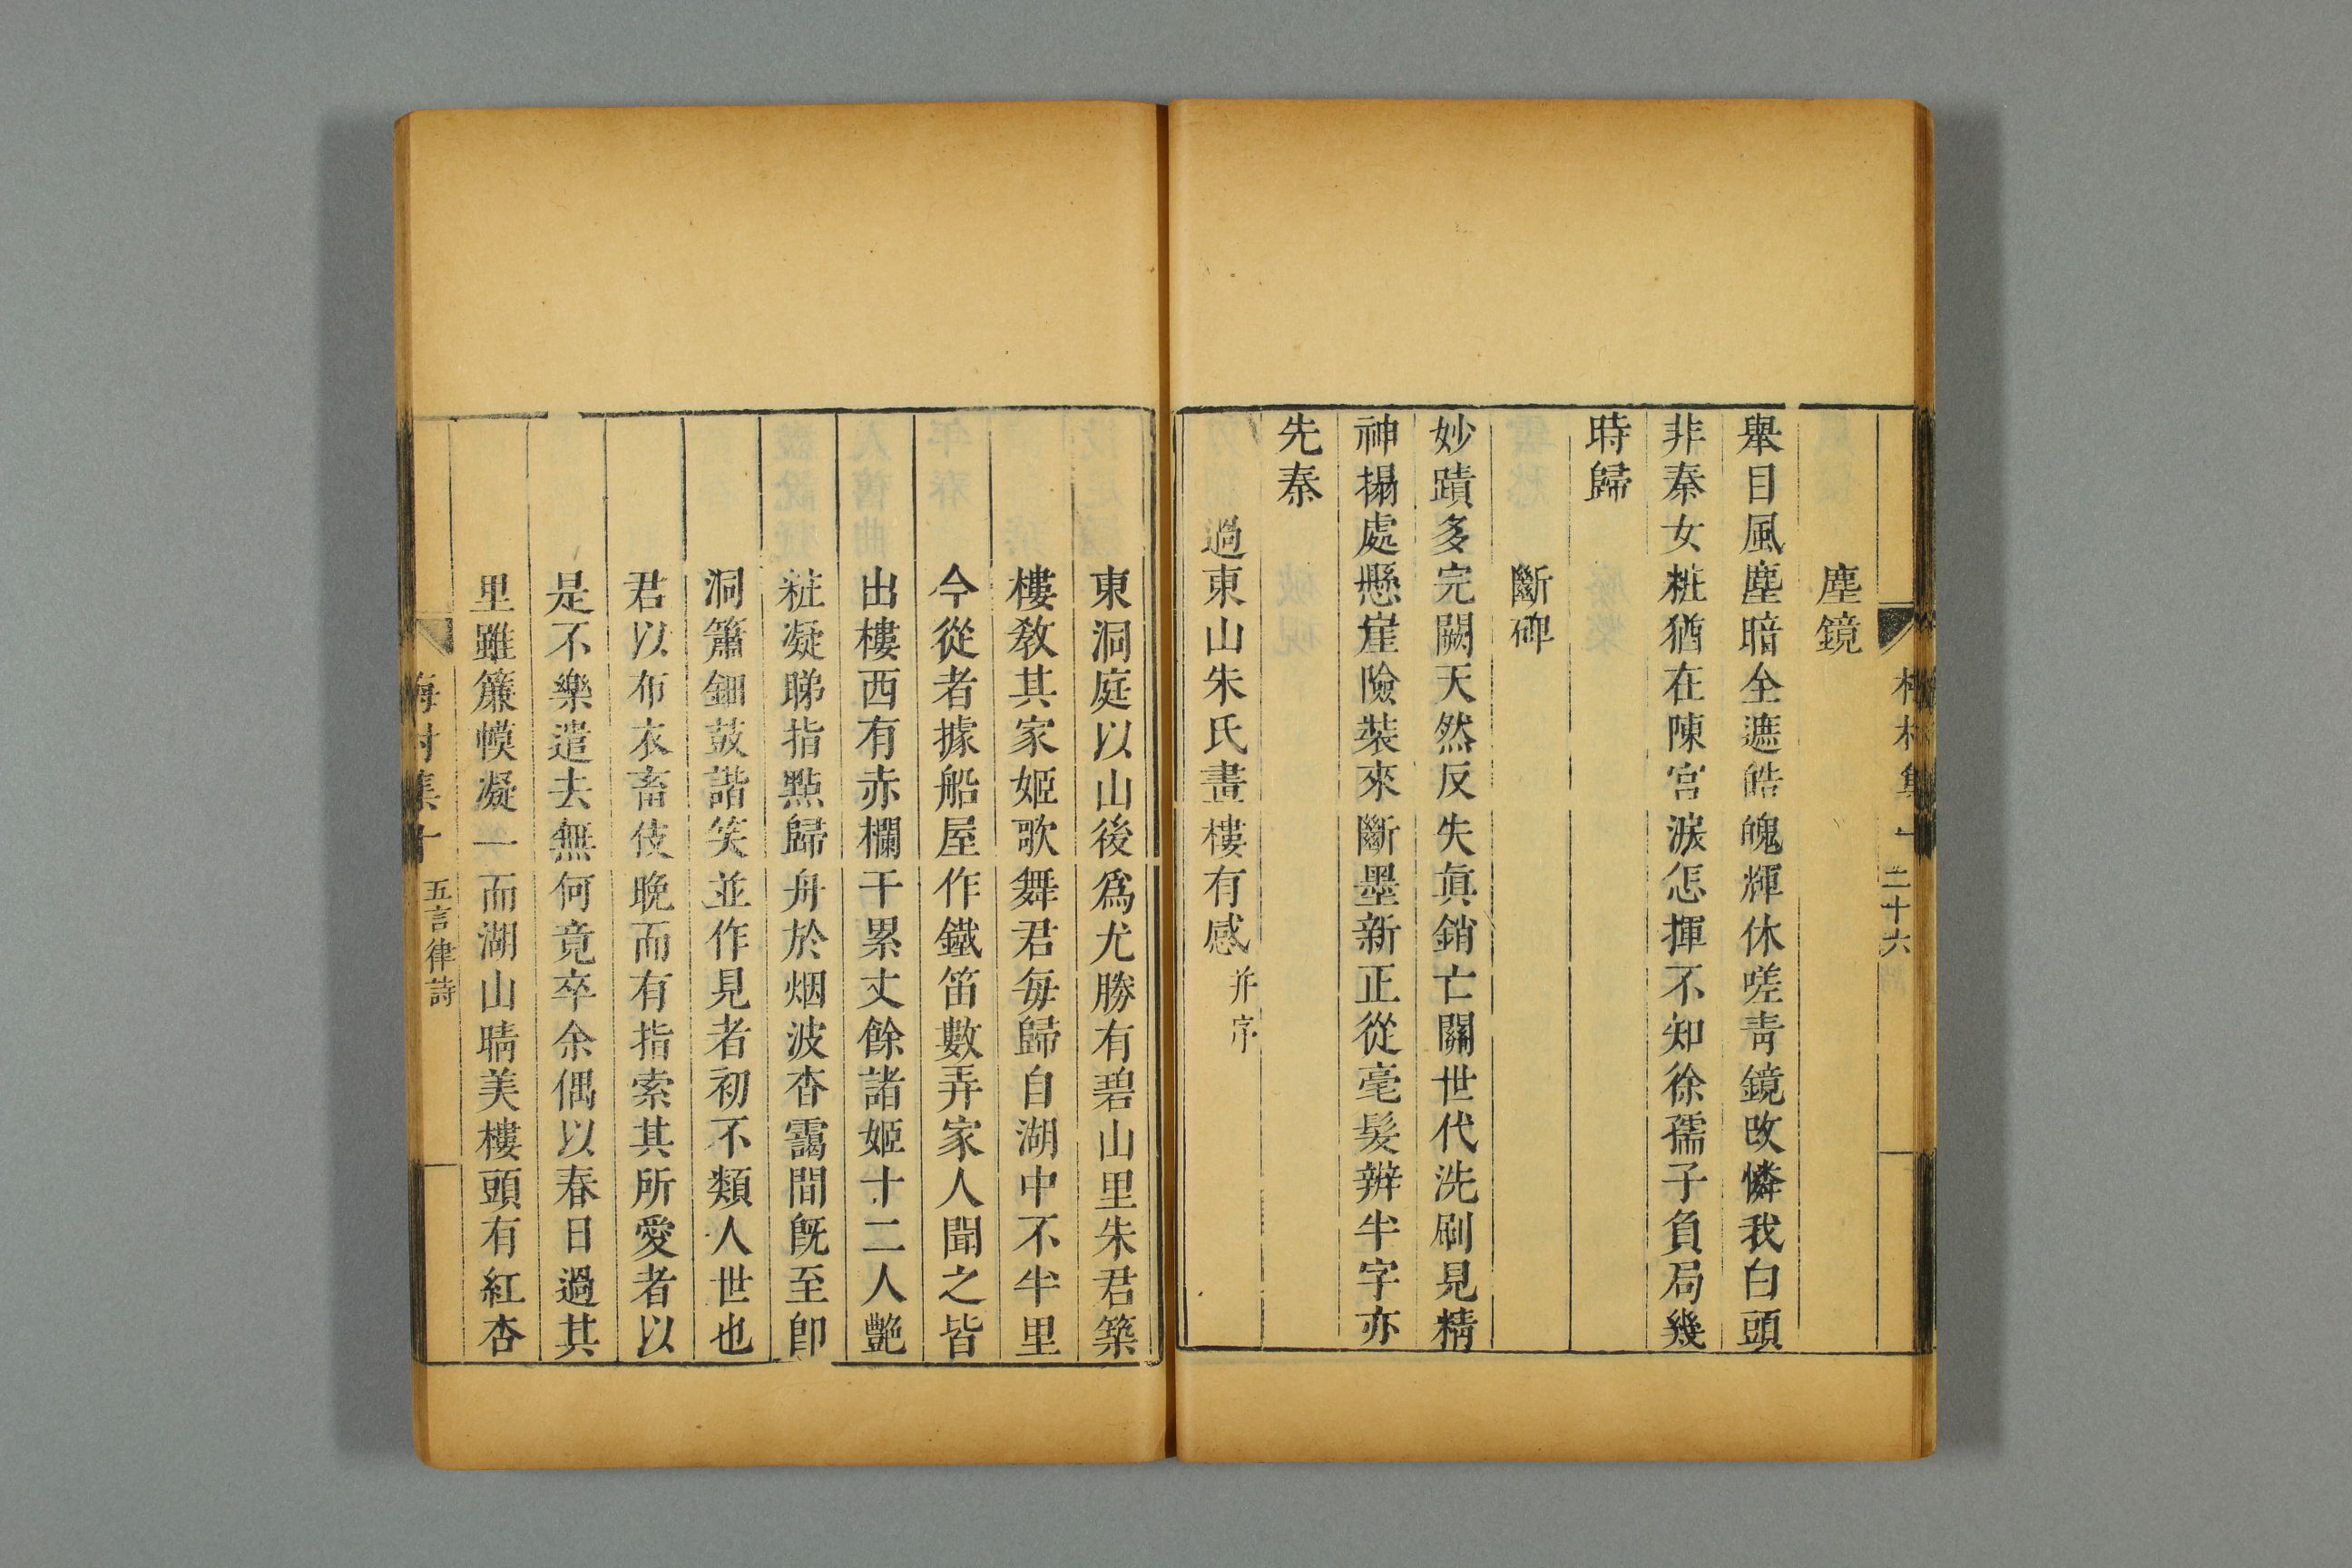 二十六
塵鏡
舉目風塵暗全遮皓魄輝休嗟青鏡改憐我白頭
非秦女粧猶在陳宮淚怎揮不知徐孺子負局幾
時歸
斷碑
妙蹟多完闕天然反失眞銷亡關世代洗刷見精
神搨處懸崖險裝來斷墨新正從毫髮辨半字亦
先秦
過東山朱氏畫樓有感 并序
東洞庭以山後爲尤勝有碧山里朱君築
樓敎其家姬歌舞君每歸自湖中不半里
令從者據船屋作鐵笛數弄家人聞之皆
出樓西有赤欄干累丈餘諸姬十二人艶
粧凝睇指點歸舟於烟波杳靄間旣至卽
洞簫鈿鼓諧笑並作見者初不類人世也
君以布衣畜伎晚而有指索其所愛者以
是不樂遣去無何竟卒余偶以春日過其
里雖簾幙凝一而湖山晴美樓頭有紅杏
梅村集十 五言律詩